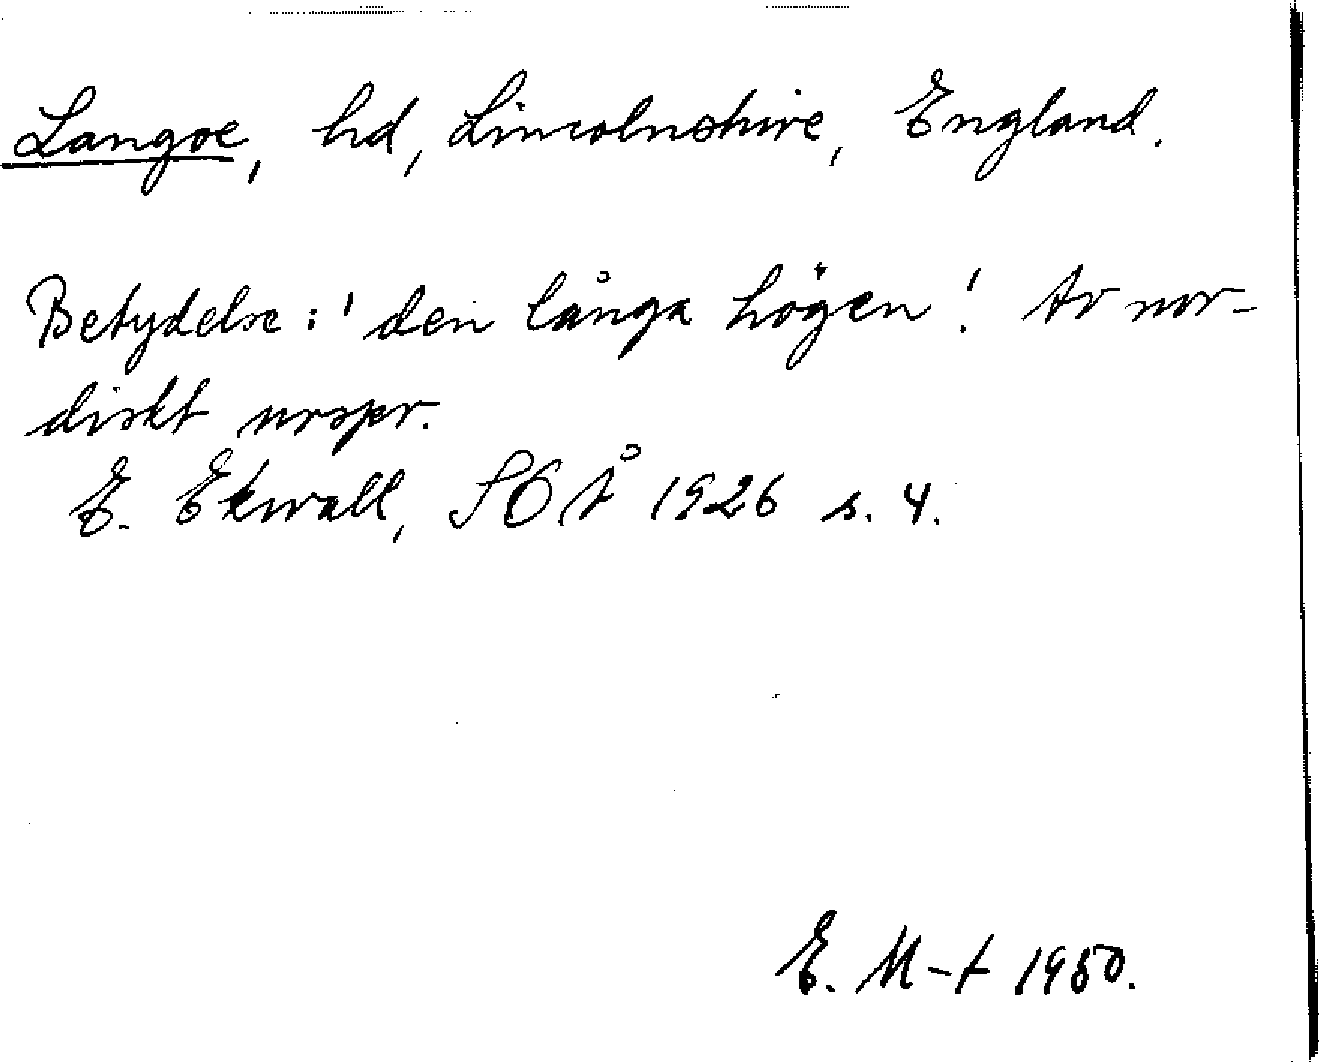 Langoe, hd, Lincolnshire, England.
Betydelse: 'den långa högen'. Av nor-
diskt urspr.
E. Ekwall, SOÅ 1926 s. 4.
E. M-t 1950.